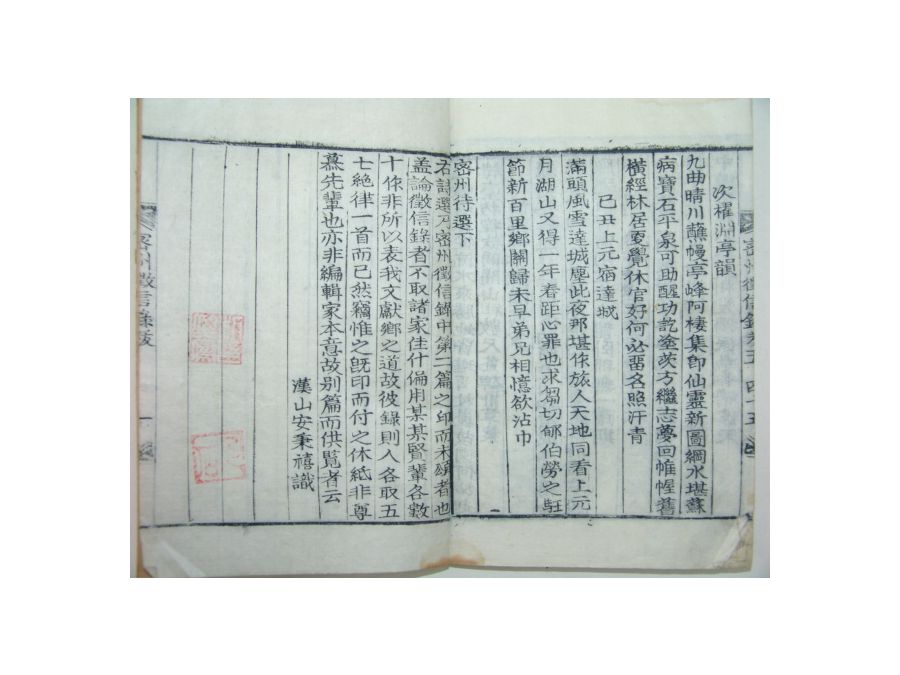 次櫂淵亭韻
九曲晴川蘸幔亭峰阿棲集即仙靈新圖綢水堪蘇
病寶石平泉可助醒功訖塗茨方繼志夢回帷幄舊
橫經林居更覺休官好何必留名照汗青
己丑上元宿達城
滿頭風雪達城塵此夜那堪作旅人天地同看上元
月湖山又得一年春距心罪也求芻切郇伯勞之駐
節新百里鄉關歸未早弟兄相憶欲沾巾
密州徵信錄卷五 四十五
密州待選下
右詩選乃密州徵信錄中第二篇之印而未頒者也
盖論徵信錄者不取諸家佳什偏用某某賢輩各數
十作非所以表我文獻鄉之道故彼錄則人各取五
七絶律一首而已然竊惟之旣印而付之休紙非尊
慕先輩也亦非編輯家本意故别篇而供覧者云
漢山安秉禧識
密州徵信錄跋 一